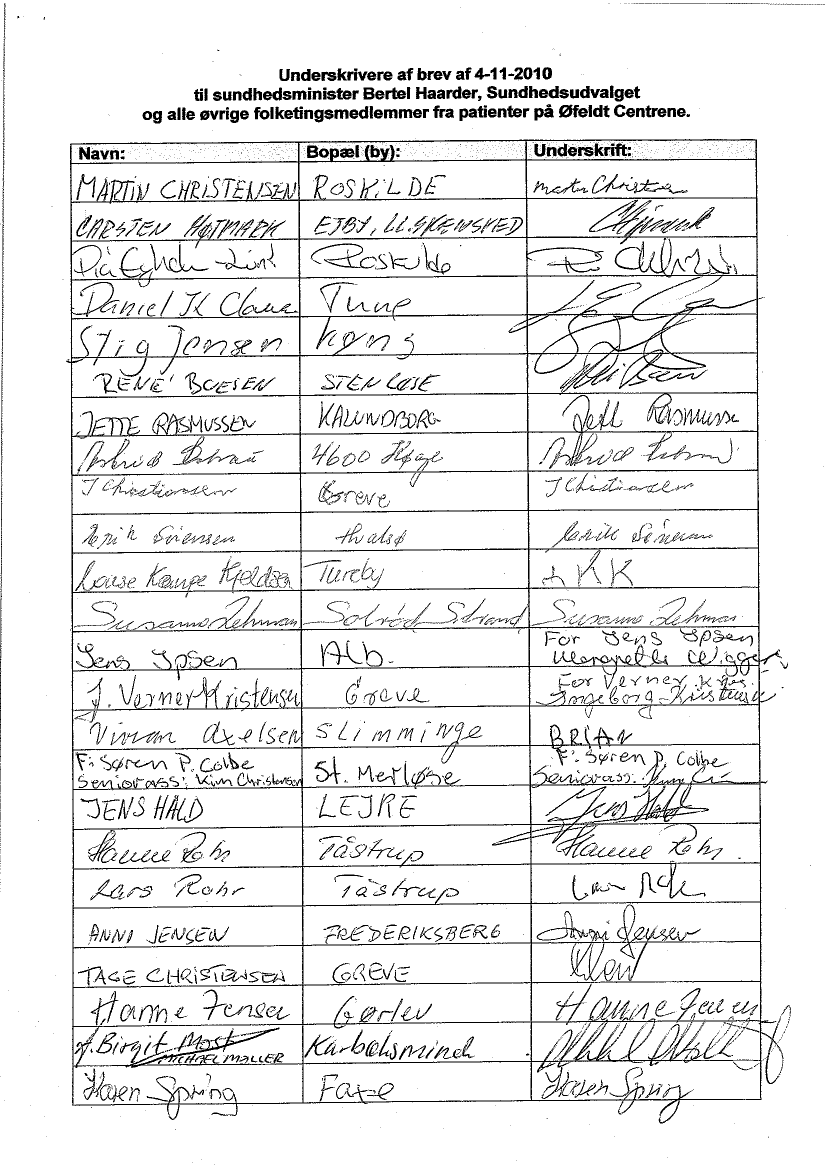 Underskrivere af brev af 4-11-2010
til sundhedsminister Bertel Haarder, Sundhedsudvalget
og alle øvrige folketingsmedlemmer fra patienter på Øfeldt Centrene.
Navn: Bopæl (by): Underskrift:
MARTIN CHRISTENSEN ROSKILDE Martin Christensen
CARSTEN HØTMARK EJBY, LL. SKENSVED
Pia Link Roskilde
Daniel K Claus Tune
Stig Jensen Køng
RENÉ BOESEN STENLØSE
JETTE RASMUSSEN KALUNDBORG Jett Rasmusse
Astrid 4600 Køge Astrid
J Christiansen Greve J Christiansen
Erik Sørensen Hvalsø Erik Sørensen
Louise Kampe Kjeldsen Tureby LKK
Susanne Lehman Solrød Strand Susanne Lehman
Jens Ipsen Alb. For Jens Ipsen
J. Verner Kristensen Greve For Verner Kris.
Ingeborg Kristensen
Vivian Axelsen Slimminge BRIAN
F: Søren P. Colbe St. Merløse F: Søren P. Colbe
Seniorass: Kim Christensen Seniorass:
JENS HALD LEJRE Jens Hald
Hanne Rohr Tåstrup Hanne Rohr
Lars Rohr Tåstrup
ANNI JENSEN FREDERIKSBERG Anni Jensen
TAGE CHRISTENSEN GREVE
Hanne Jensen Gørlev Hanne Jensen
f. Birgit Most Karbæksminde
MICHAEL MØLLER
Karen Spring Faxe Karen Spring